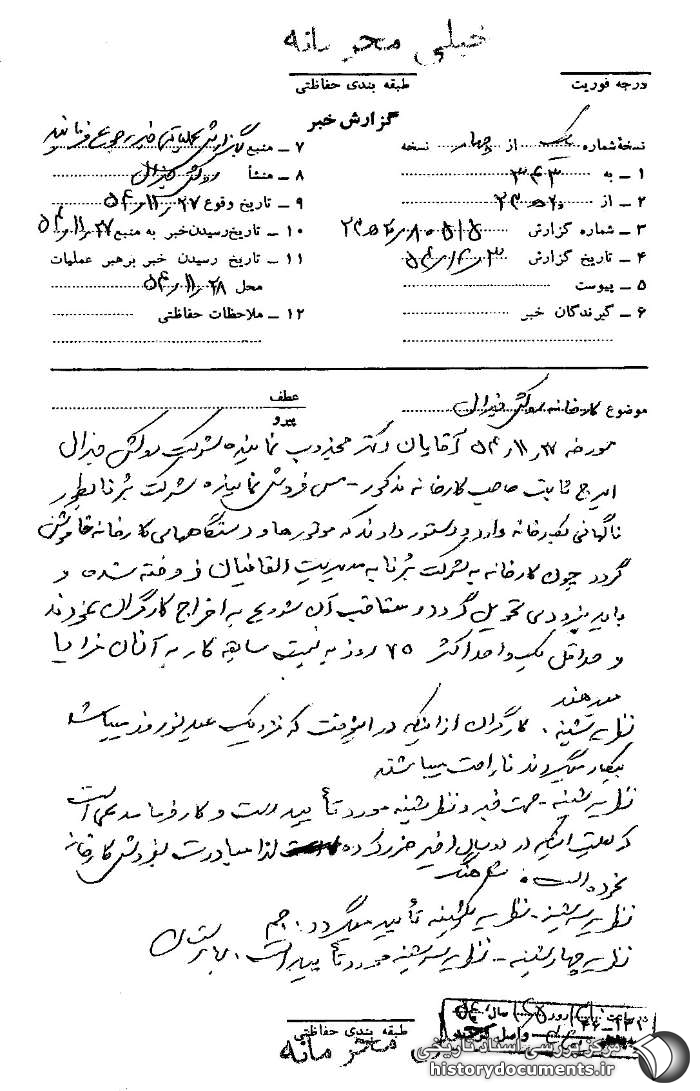 خیلی محرمانه
درجه فوریت
طبقه بندی حفاظتی
گزارش خبر
نسخهٔ شماره یک از چهار نسخه
۱ ـ به ۳۴۳
۲ ـ از ۲۰ ه ۲۳
۳ ـ شماره گزارش
۴ ـ تاریخ گزارش
۵ ـ پیوست
۶ ـ گیرندگان خبر
۷ ـ منبع
۸ ـ منشأ روکش جنرال
۹ ـ تاریخ وقوع ۲۷ر۱۱ر۵۴
۱۰ ـ تاریخ رسیدن خبر به منبع ۲۷ر۱۱ر۵۴
۱۱ ـ تاریخ رسیدن خبر برهبر عملیات
محل ۲۸ر۱۱ر۵۴
۱۲ ـ ملاحظات حفاظتی
موضوع کارخانه روکش جنرال
عطف
پیرو
مورخه ۲۷ر۱۱ر۵۴ آقایان دکتر مجذوب نماینده شرکت روکش جنرال
ایرج ثابت صاحب کارخانه مذکور - مس فروش نماینده شرکت بُرنا بطور
ناگهانی بکارخانه وارد و دستور دادند که موتورها و دستگاههای کارخانه خاموش
گردد چون کارخانه به شرکت بُرنا به مدیریت القانیان فروخته شده و
باید بزودی تحویل گردد و متعاقب آن شروع به اخراج کارگران نمودند
و حداقل یک و حداکثر ۷۵ روز به نسبت سابقه کار به آنان مزایا
میدهند
نظریه شنبه. کارگران از اینکه در این وقت که نزدیک عید نوروز میباشد
بیکار میگردند ناراحت میباشند
نظریه یکشنبه - صحت خبر و نظر شنبه مورد تأیید است و کارفرما مدعی است
که بعلت اینکه در دو سال اخیر ضرر کرده لذا مبادرت بفروش کارخانه
نموده است.
نظریه سه شنبه - نظریه یکشنبه تأیید میگردد. جم
نظریه چهارشنبه - نظریه سه شنبه مورد تأیید است.
طبقه بندی حفاظتی
خیلی محرمانه
مرکز بررسی اسناد تاریخی
historydocuments.ir